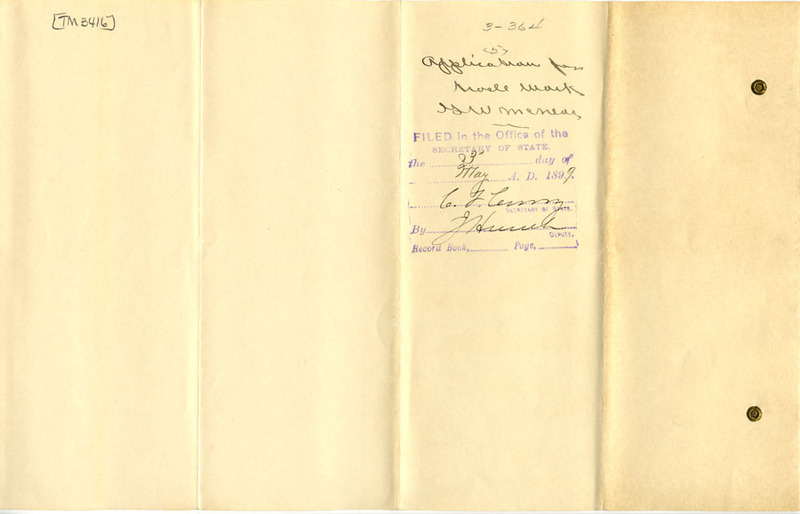 [TM3416]
3-364
(3)
Application for
Trade Mark
G W McNear
FILED in the Office of the
SECRETARY OF STATE.
the 3d day of
May A. D. 1897.
C. F. Curry
SECRETARY OF STATE.
By J Hoesch
DEPUTY.
Record Book, Page,